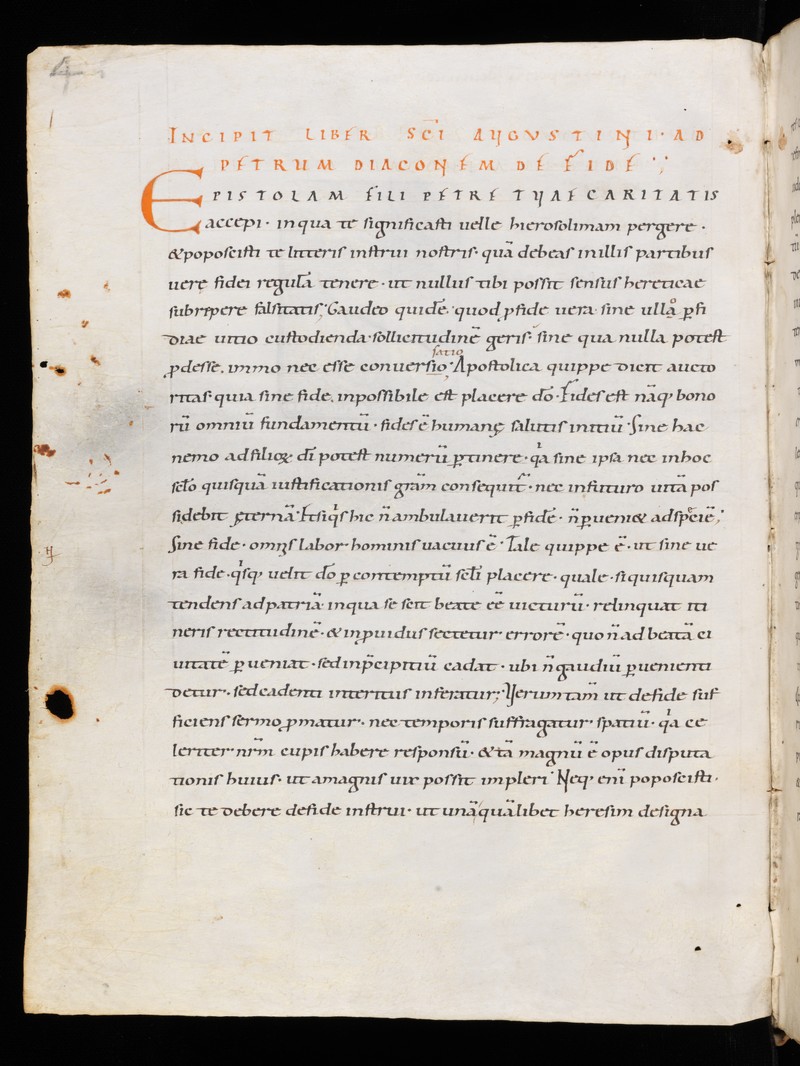 INCIPIT LIBER SC̅I AUGUSTINI · AD
PETRUM DIACONEM DE FIDE
EPISTOLAM FILI PETRE TUAE CARITATIS
accepi · in qua te significasti uelle hierosolimam pergere ·
& poposcisti te litteris instrui nostris · quā debeas in illis partibus
uere fidei regulā tenere · ut nullus tibi possit sensus hereticae
subripere falsitatis · Gaudeo quidē · quod ꝓ fide uera sine ullạ ꝑfi
diae uitio custodienda sollicitudinē geris · sine qua nulla potest
ꝓdesse . immo nec esse conuersio · Apostolica quippe dicit aucto
satio
ritas · quia sine fide . inpossibile est placere dō · Fides est nāq; bono
rū omniū fundamentū · fides ē humanę salutis initiū · Sine hac
nemo ad filioꝝ dī potest numerū ꝑtinere · qa sine ipsa nec in hoc
sc̅lo quisquā iustificationis gr̅am consequit̅ · nec in futuro uitā pos
sidebit ęternā · Et siqs hic n̄ ambulauerit ꝑ fidē · n̄ ꝑueni& ad spēciē ;
Sine fide · omnis labor hominis uacuus ē · Tale quippe ē · ut sine ue
ra fide · qsq; uelit dō ꝑ contemptū sc̅li placere · quale · si quisquam
tendens ad patriā · in qua se scit beate eē uicturū · relinquat iti
neris rectitudinē · & inꝓuidus sectetur · errorē · quo n̄ ad beatā ci
uitatē ꝑueniat · sed in p̄cipitiū cadat · ubi n̄ gaudiū ꝑuenienti
detur · sed cadenti interitus inferatur ; Uerum tam̄ ut de fide suf
ficiens sermo ꝓmatur · nec temporis suffragatur · spatiū · qa ce
leriter · nr̅m cupis habere responsū · & tā magnū ē opus disputa
tionis huius · ut a magnis uix possit impleri · Neq; eni̅ poposcisti ·
sic te debere de fide instrui · ut unā quālibet heresim designa